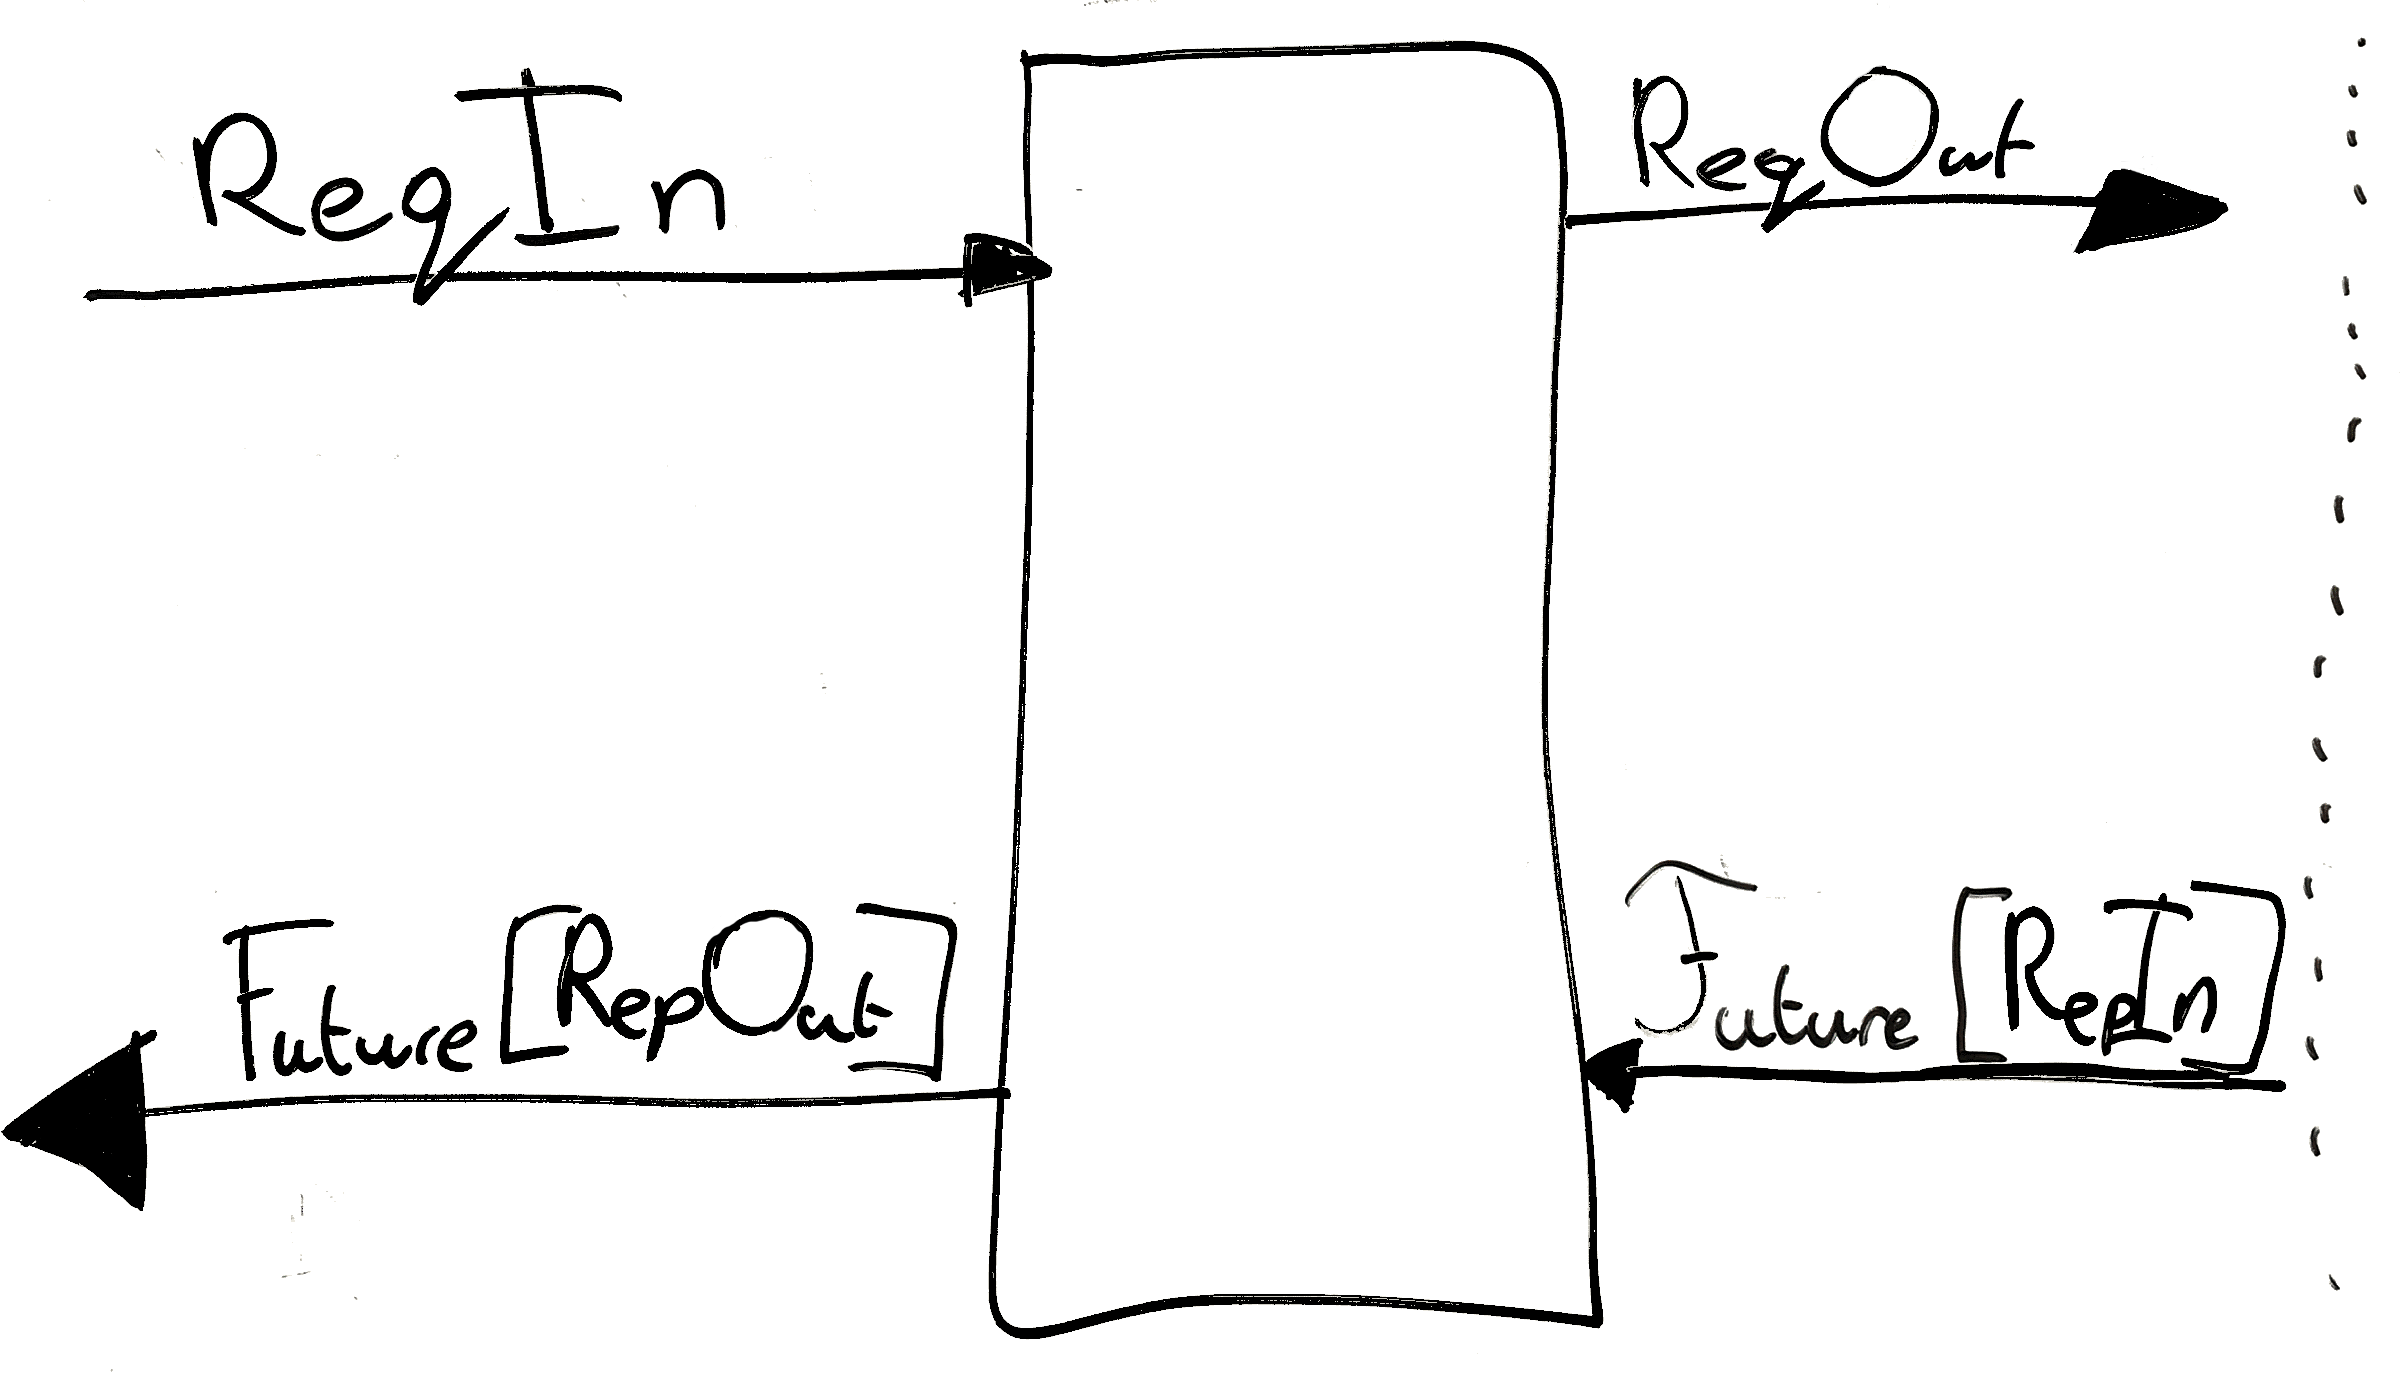 ReqIn
ReqOut
Future[RepOut]
Future[RepIn]